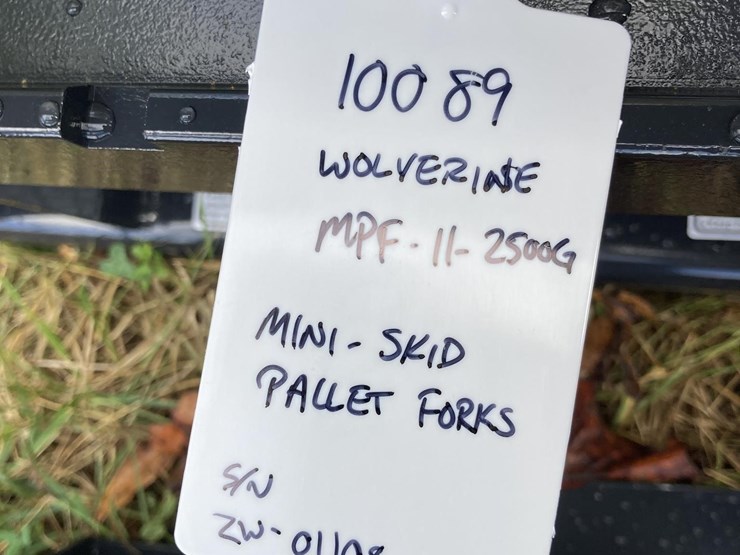 10089
WOLVERINE
MPF-11-2500G
MINI-SKID
PALLET FORKS
S/N